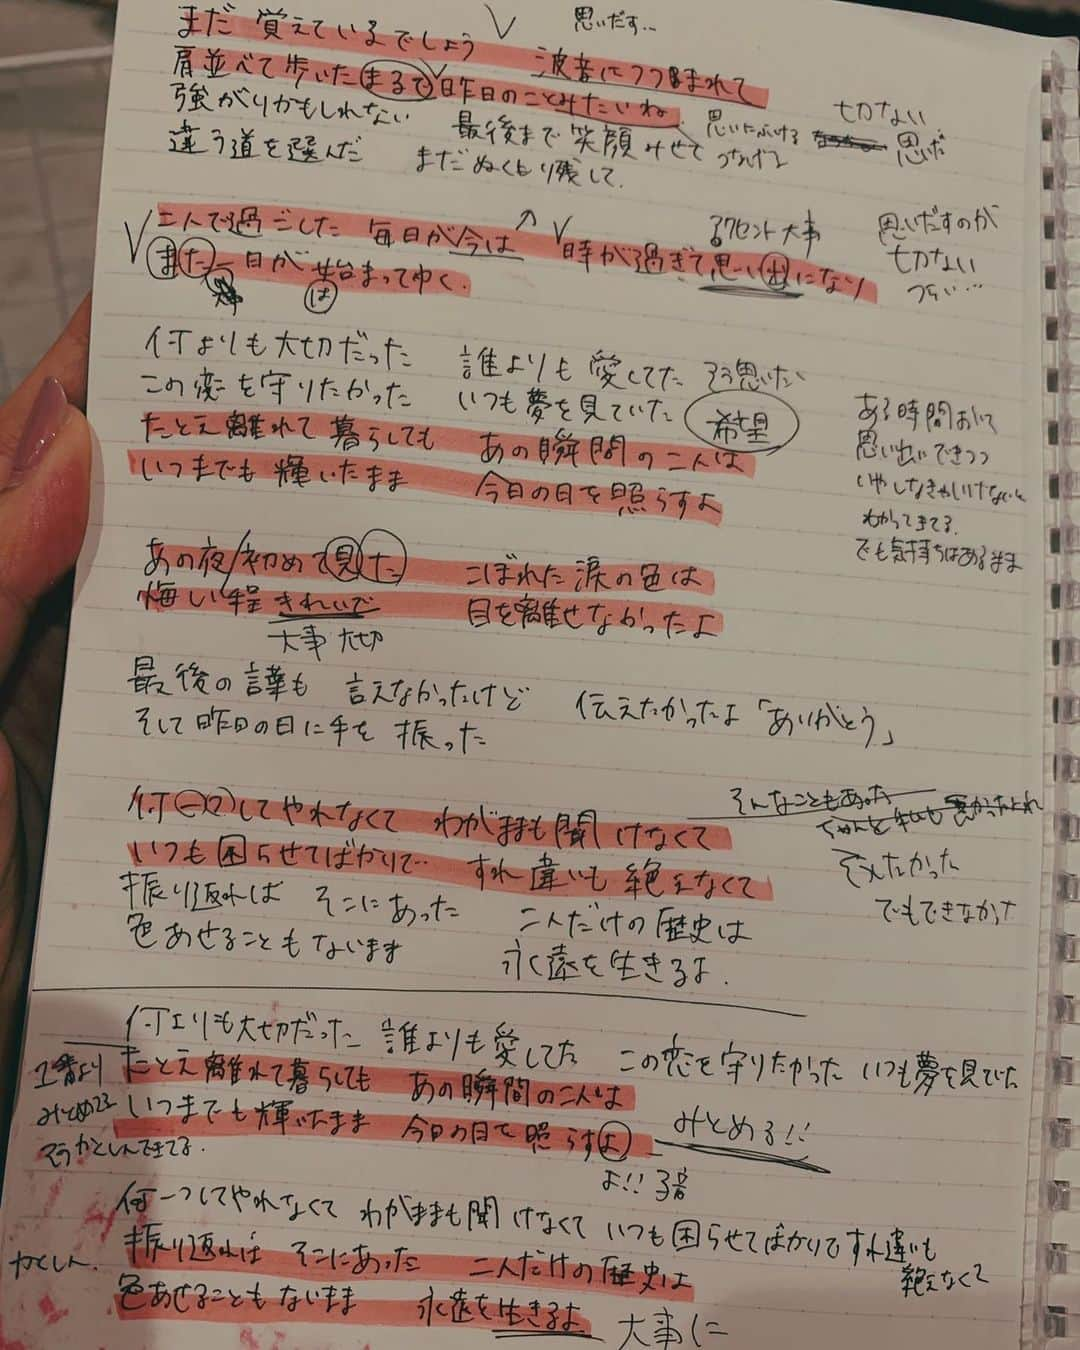 まだ 覚えているでしょう 波音につつまれて
思いだす…
肩並べて歩いた まるで 昨日のことみたいね
強がりかもしれない 最後まで笑顔みせて
切ない
違う道を選んだ まだぬくもり残して
思いだ
二人で過ごした 毎日が今は 時が過ぎて思い出になり
アクセント大事
また一日が始まってゆく
は
思いだすのが
切ない
つらい…
何よりも大切だった 誰よりも愛してた そう思いたい
この恋を守りたかった いつも夢を見ていた 希望
たとえ離れて暮らしても あの瞬間の二人は
いつまでも輝いたまま 今日の日を照らすよ
ある時間おいて
思い出にできつつ
いやしなきゃいけないと
わかってきてる
でも気持ちはあるまま
あの夜/初めて見た こぼれた涙の色は
悔しい程きれいで 目を離せなかったよ
大事 大切
最後の言葉も 言えなかったけど 伝えたかったよ「ありがとう」
そして昨日の日に手を振った
そんなこともあった
何一つしてやれなくて わがままも聞けなくて
いつも困らせてばかりで… すれ違いも絶えなくて
つたえたかった
でもできなかった
振り返れば そこにあった 二人だけの歴史は
色あせることもないまま 永遠を生きるよ.
何よりも大切だった 誰よりも愛してた この恋を守りたかった いつも夢を見ていた
1番より
みとめてる
たとえ離れて暮らしても あの瞬間の二人は
いつまでも輝いたまま 今日の日を照らすよ みとめる!!
よ!!
何一つしてやれなくて わがままも聞けなくて いつも困らせてばかりで すれ違いも
絶えなくて
かくしん.
振り返れば そこにあった 二人だけの歴史は
色あせることもないまま 永遠を生きるよ 大事に